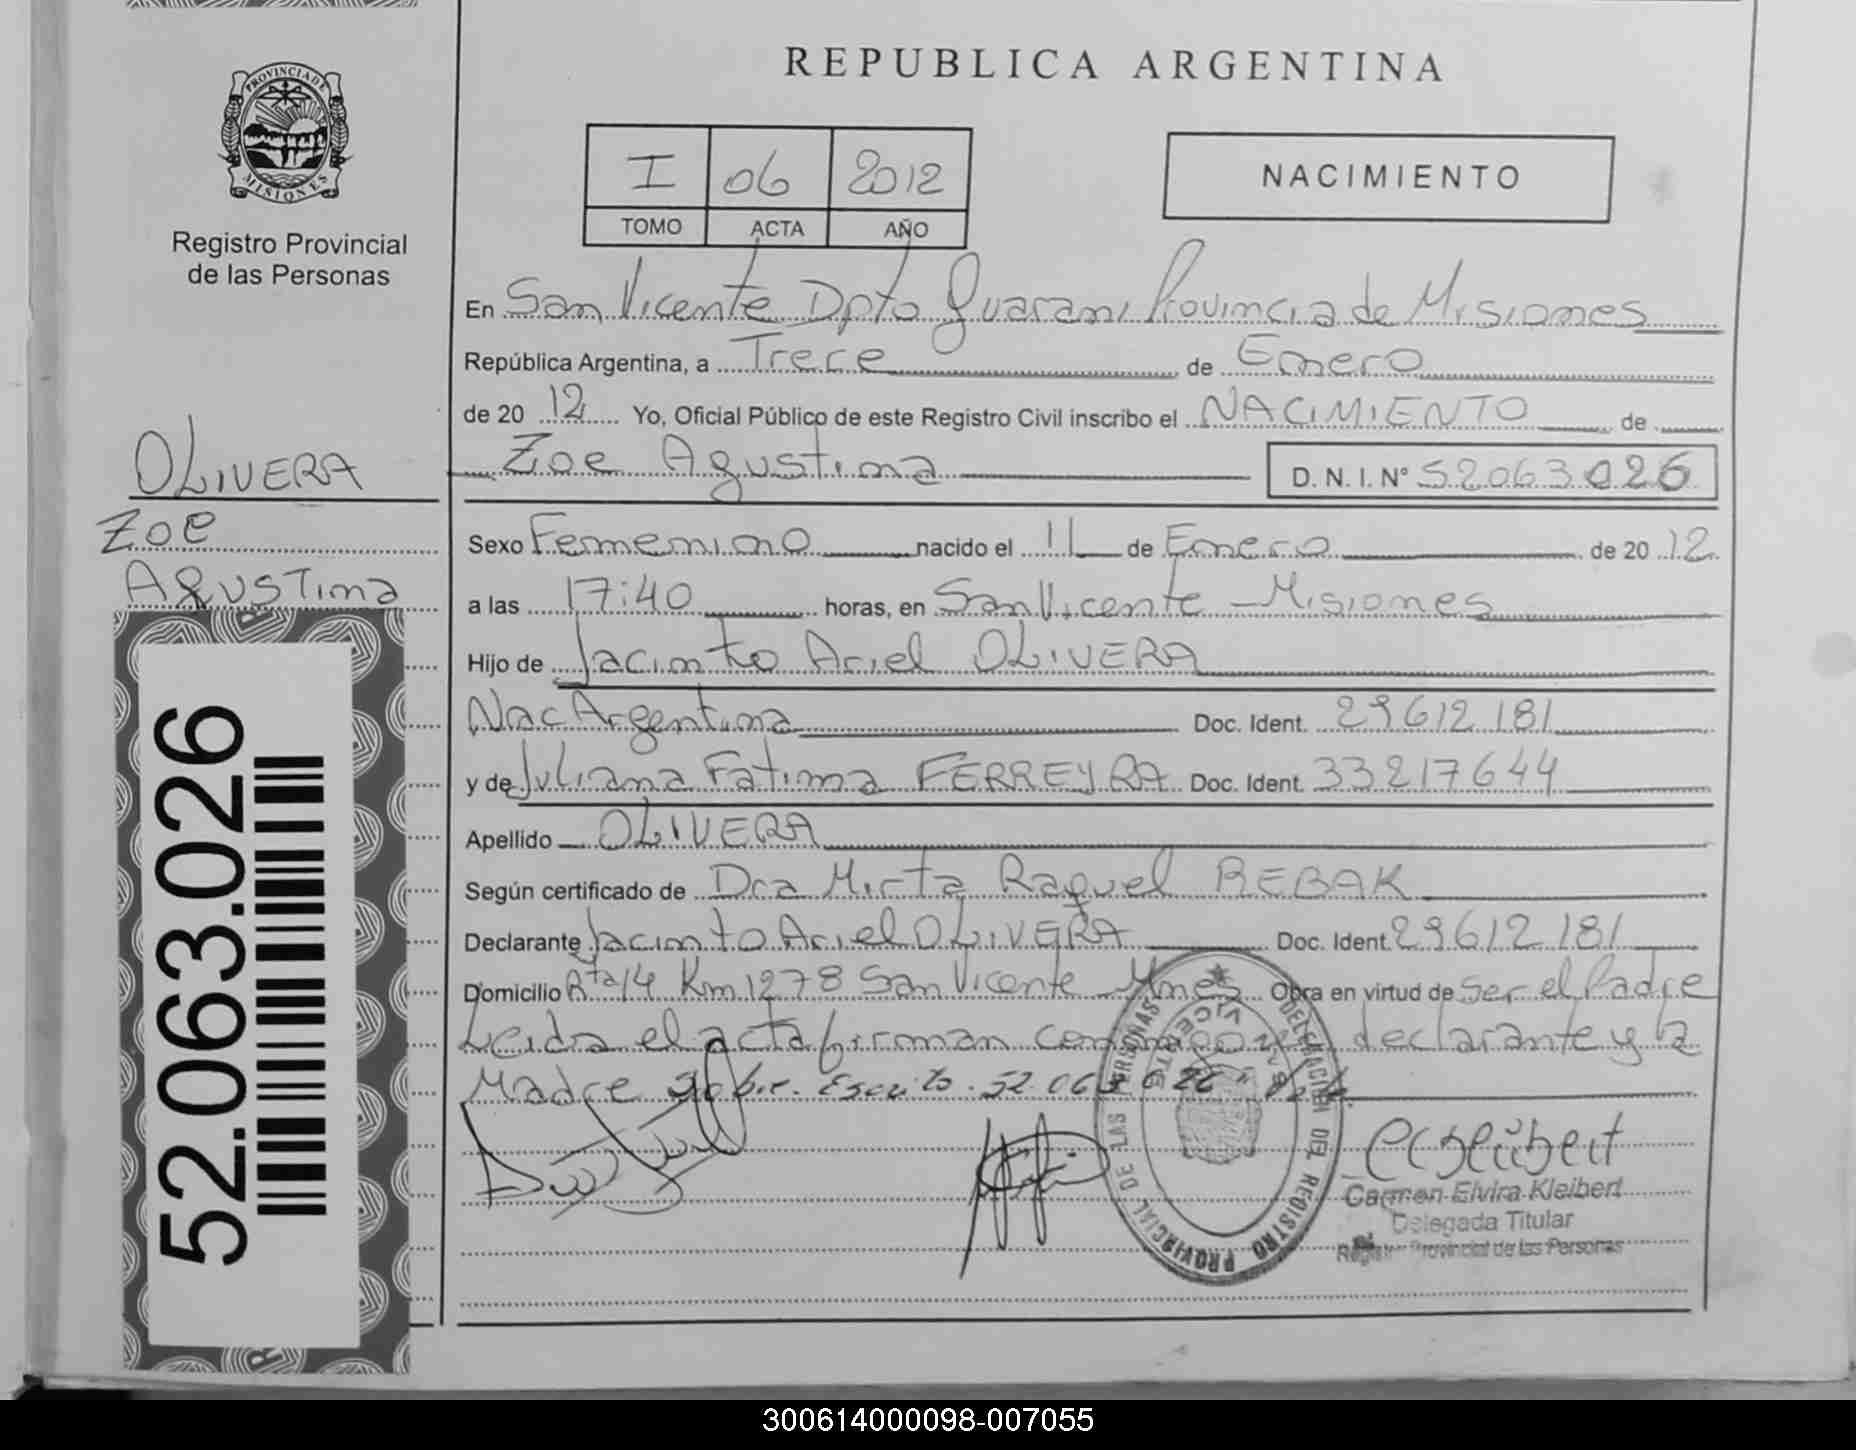 PROVINCIA DE
MISIONES
Registro Provincial
de las Personas
OLIVERA
Zoe
Agustina
52.063.026
REPUBLICA ARGENTINA
I 06 2012
TOMO ACTA AÑO
NACIMIENTO
En San Vicente Dpto Guarani Provincia de Misiones
República Argentina, a Trece de Enero
de 20 12 Yo, Oficial Público de este Registro Civil inscribo el NACIMIENTO de
Zoe Agustina D. N. I. Nº 52063026
Sexo Femenino nacido el 11 de Enero de 20 12
a las 17:40 horas, en San Vicente - Misiones
Hijo de Jacinto Ariel OLIVERA
Nac Argentina Doc. Ident. 29612181
y de Juliana Fatima FERREYRA Doc. Ident. 33217644
Apellido OLIVERA
Según certificado de Dra Mirta Raquel REBAK
Declarante Jacinto Ariel OLIVERA Doc. Ident. 29612181
Domicilio Rta 14 Km 1278 San Vicente Mnes Obra en virtud de Ser el Padre
Leida el acta firman conmigo declarante y la
Madre Sobre Escrito. 52.063.026
DELEGACION DEL REGISTRO PROVINCIAL DE LAS PERSONAS
SAN VICENTE
Carmen Elvira Kleibert
Delegada Titular
Registro Provincial de las Personas
300614000098-007055